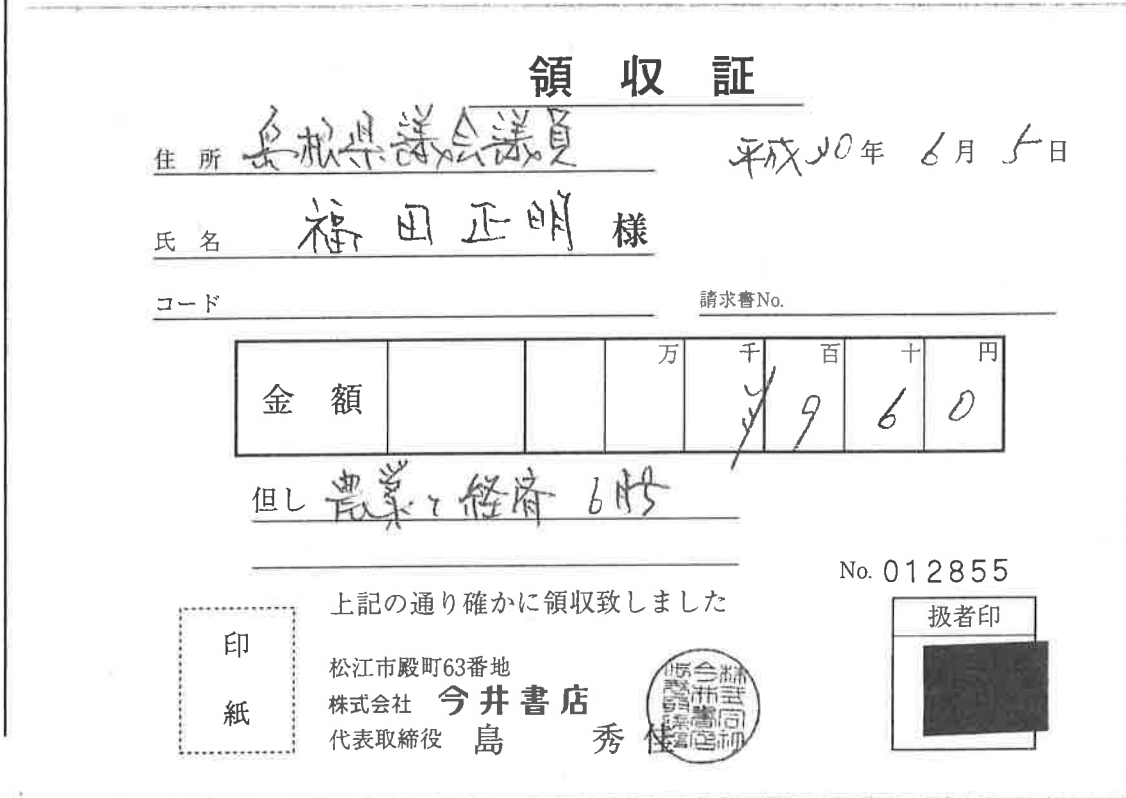 領収証
住所 島根県議会議員
平成20年6月5日
氏名 福田正明 様
コード
請求書No.
金額 万 千 百 十 円
¥960
但し 農業と経済 6月号
No. 012855
上記の通り確かに領収致しました
扱者印
印紙
松江市殿町63番地
株式会社 今井書店
代表取締役 島 秀佳